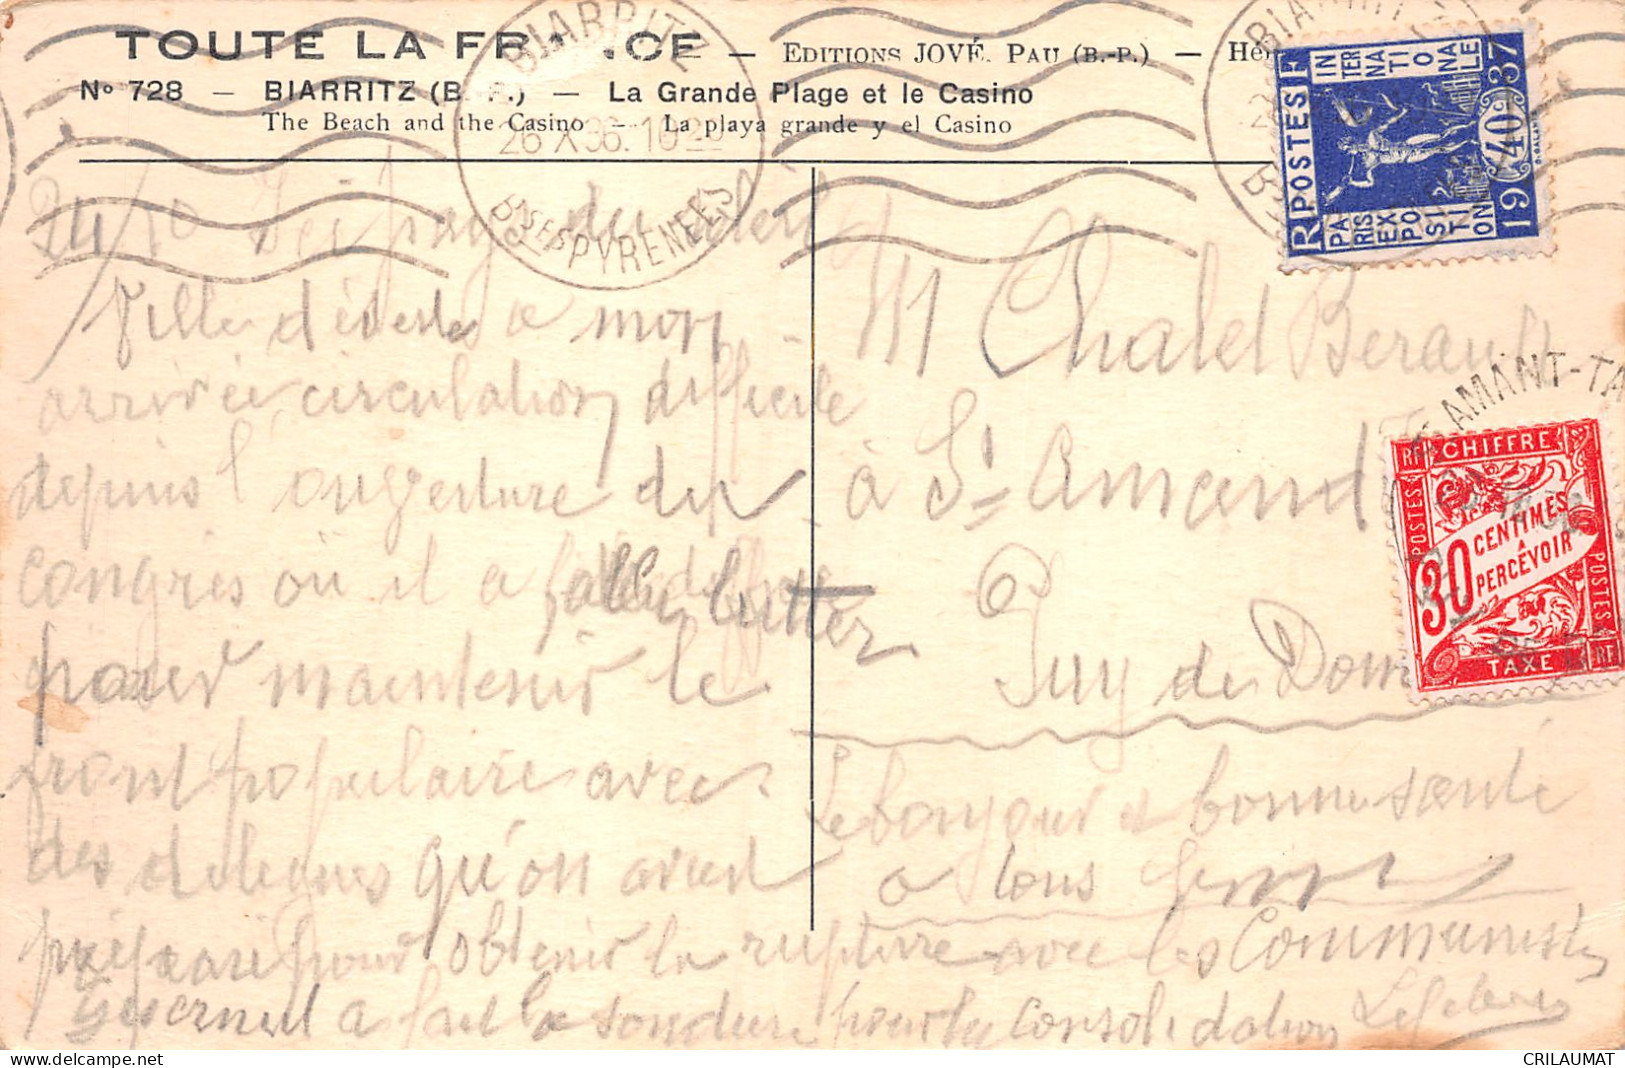 TOUTE LA FRANCE — EDITIONS JOVÉ. PAU (B.-P.) —
No 728 — BIARRITZ (B.-P.) — La Grande Plage et le Casino
The Beach and the Casino — La playa grande y el Casino
BIARRITZ
26 X 36. 10
BSES PYRENEES
POSTES RF
PARIS EXPOSITION INTERNATIONALE
40c
1937
24/10
Ville déserte a mon
arrivée circulation difficile
depuis l'ouverture du
congrès où il a fallu lutter
pour maintenir le
front populaire avec
des delegues qu'on avait
préparé pour obtenir la rupture avec les Communistes
a fait la soudure pour la consolidation Lefebvre
M Chalet Berault
à St Amand
Puy de Dom
Le bonjour et bonne santé
a tous
AMANT-TA
RF CHIFFRE
POSTES
30 CENTIMES A PERCEVOIR
POSTES
TAXE RF
CRILAUMAT